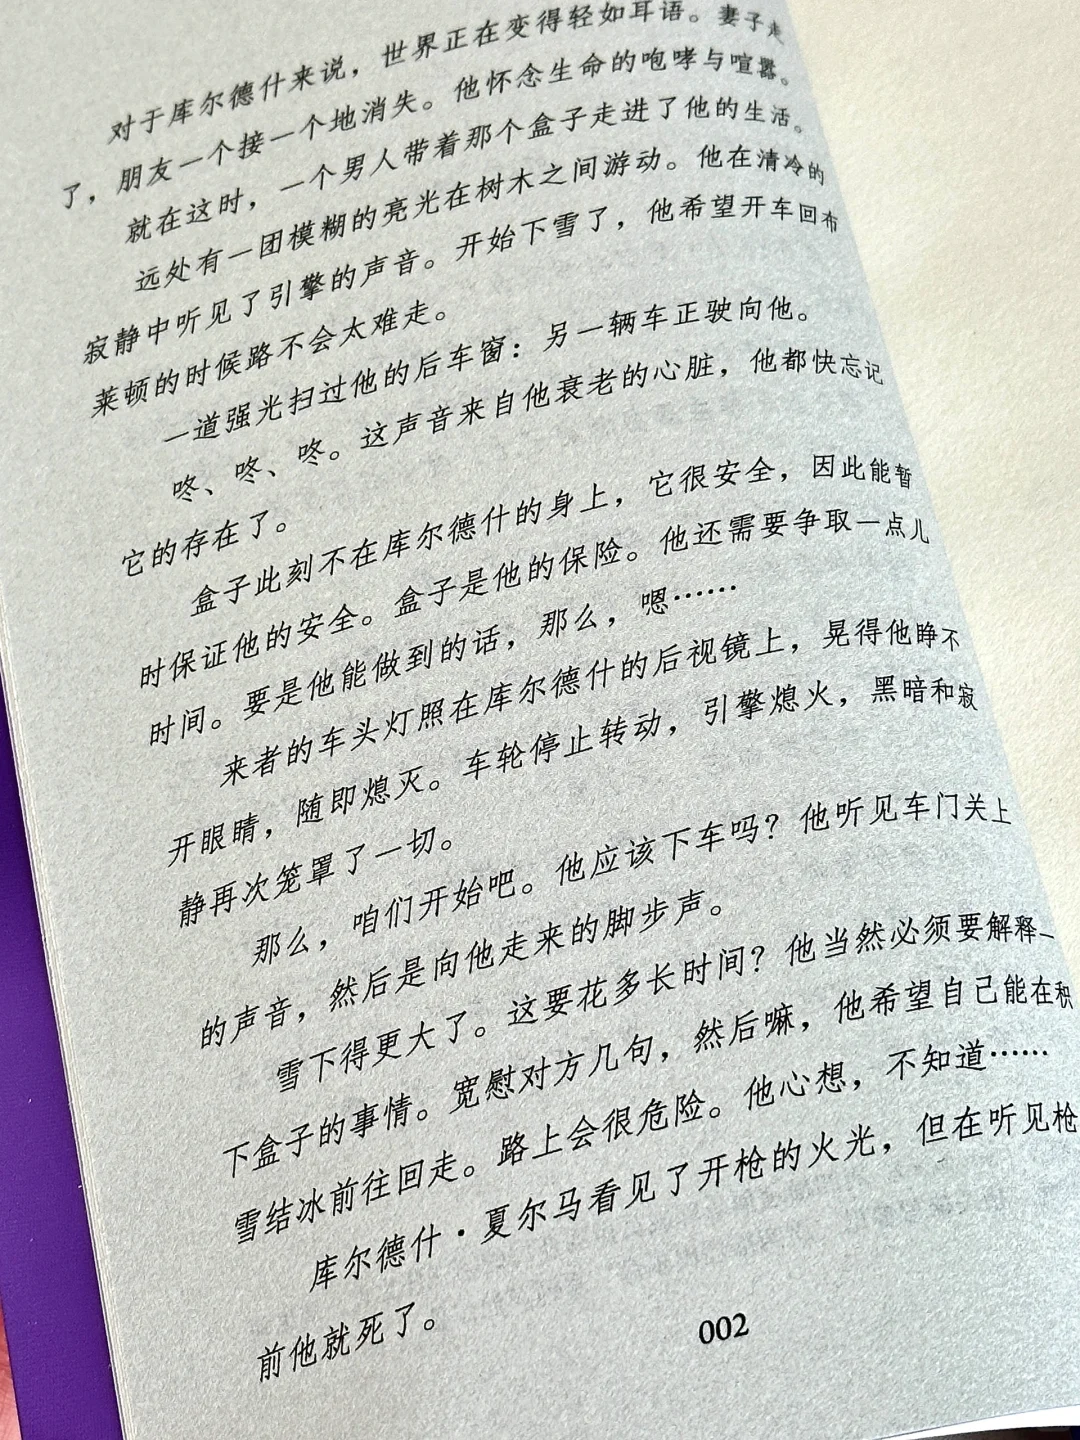 对于库尔德什来说，世界正在变得轻如耳语。妻子走
了，朋友一个接一个地消失。他怀念生命的咆哮与喧嚣。
就在这时，一个男人带着那个盒子走进了他的生活。
远处有一团模糊的亮光在树木之间游动。他在清冷的
寂静中听见了引擎的声音。开始下雪了，他希望开车回布
莱顿的时候路不会太难走。
一道强光扫过他的后车窗：另一辆车正驶向他。
咚、咚、咚。这声音来自他衰老的心脏，他都快忘记
它的存在了。
盒子此刻不在库尔德什的身上，它很安全，因此能暂
时保证他的安全。盒子是他的保险。他还需要争取一点儿
时间。要是他能做到的话，那么，嗯……
来者的车头灯照在库尔德什的后视镜上，晃得他睁不
开眼睛，随即熄灭。车轮停止转动，引擎熄火，黑暗和寂
静再次笼罩了一切。
那么，咱们开始吧。他应该下车吗？他听见车门关上
的声音，然后是向他走来的脚步声。
雪下得更大了。这要花多长时间？他当然必须要解释一
下盒子的事情。宽慰对方几句，然后嘛，他希望自己能在积
雪结冰前往回走。路上会很危险。他心想，不知道……
库尔德什·夏尔马看见了开枪的火光，但在听见枪
前他就死了。
002